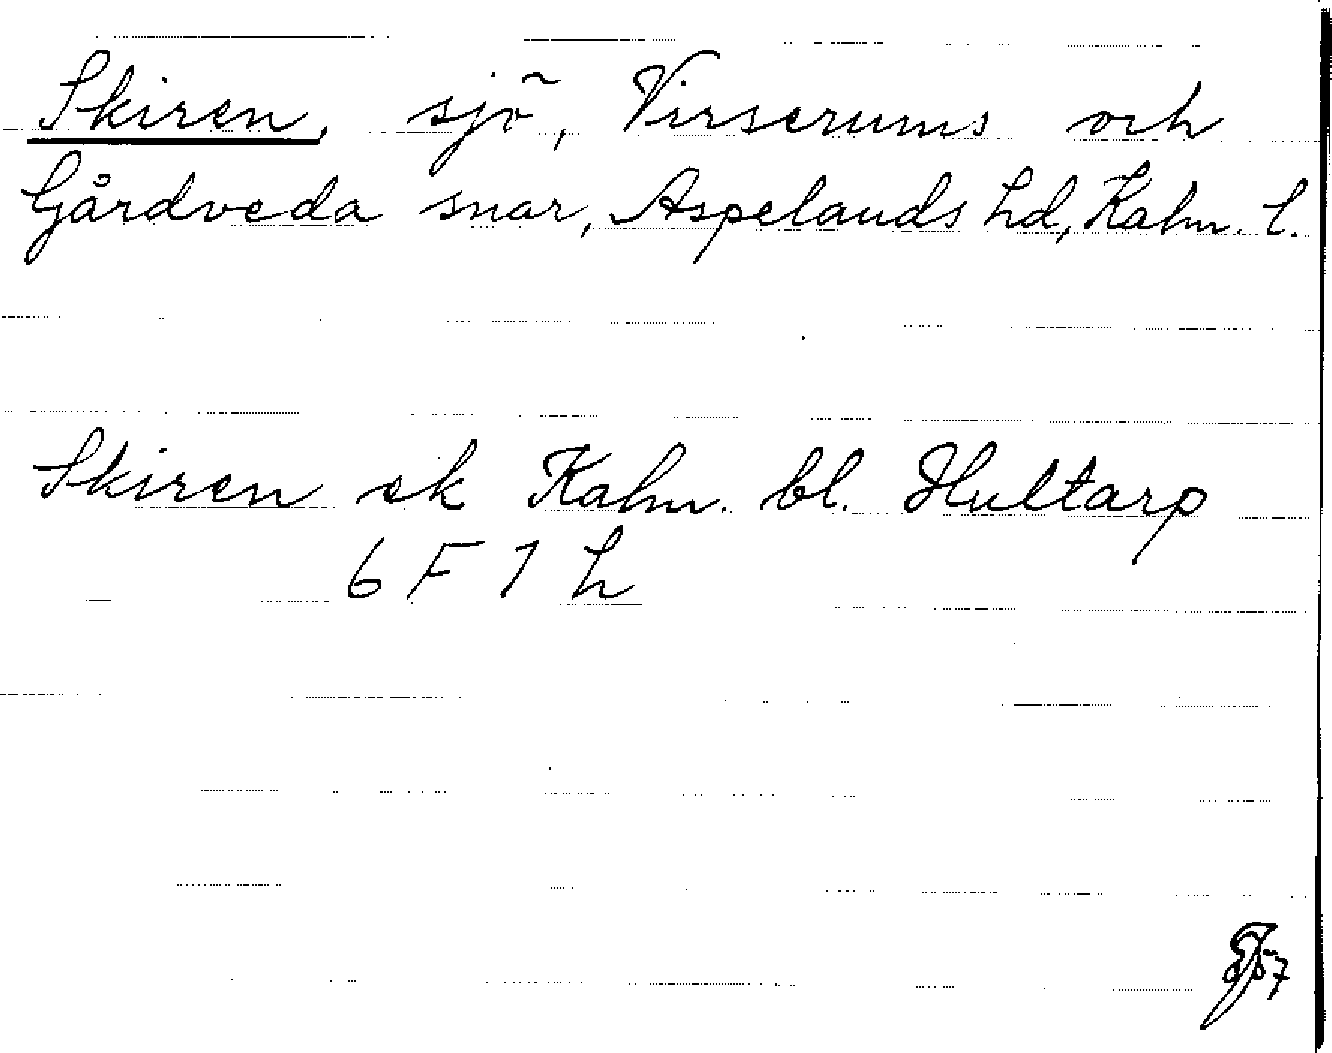 Skiren, sjö, Virserums och
Gårdveda snar, Aspelands hd, Kalm. l.
Skiren ek Kalm. bl. Hultarp
6 F 1 h